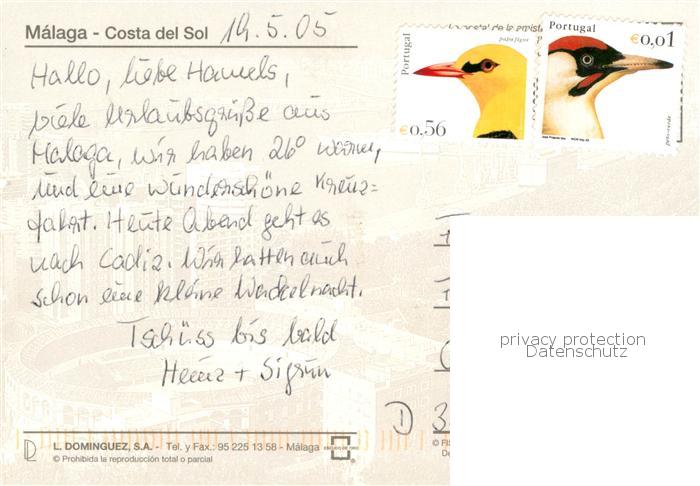 Málaga - Costa del Sol 19.5.05
Hallo, liebe Hamels,
viele Urlaubsgrüße aus
Malaga, wir haben 26° warm,
und eine wunderschöne Kreuz=
fahrt. Heute Abend geht es
nach Cadiz. Wir hatten auch
schon eine kleine Wackelnacht.
Tschüss bis bald
Heinz + Sigrun
L. DOMINGUEZ, S.A. - Tel. y Fax.: 95 225 13 58 - Málaga
© Prohibida la reproducción total o parcial
Portugal
papa-figos
€0,56
Portugal
€0,01
peto-verde
privacy protection
Datenschutz
D 3
© FIS
De